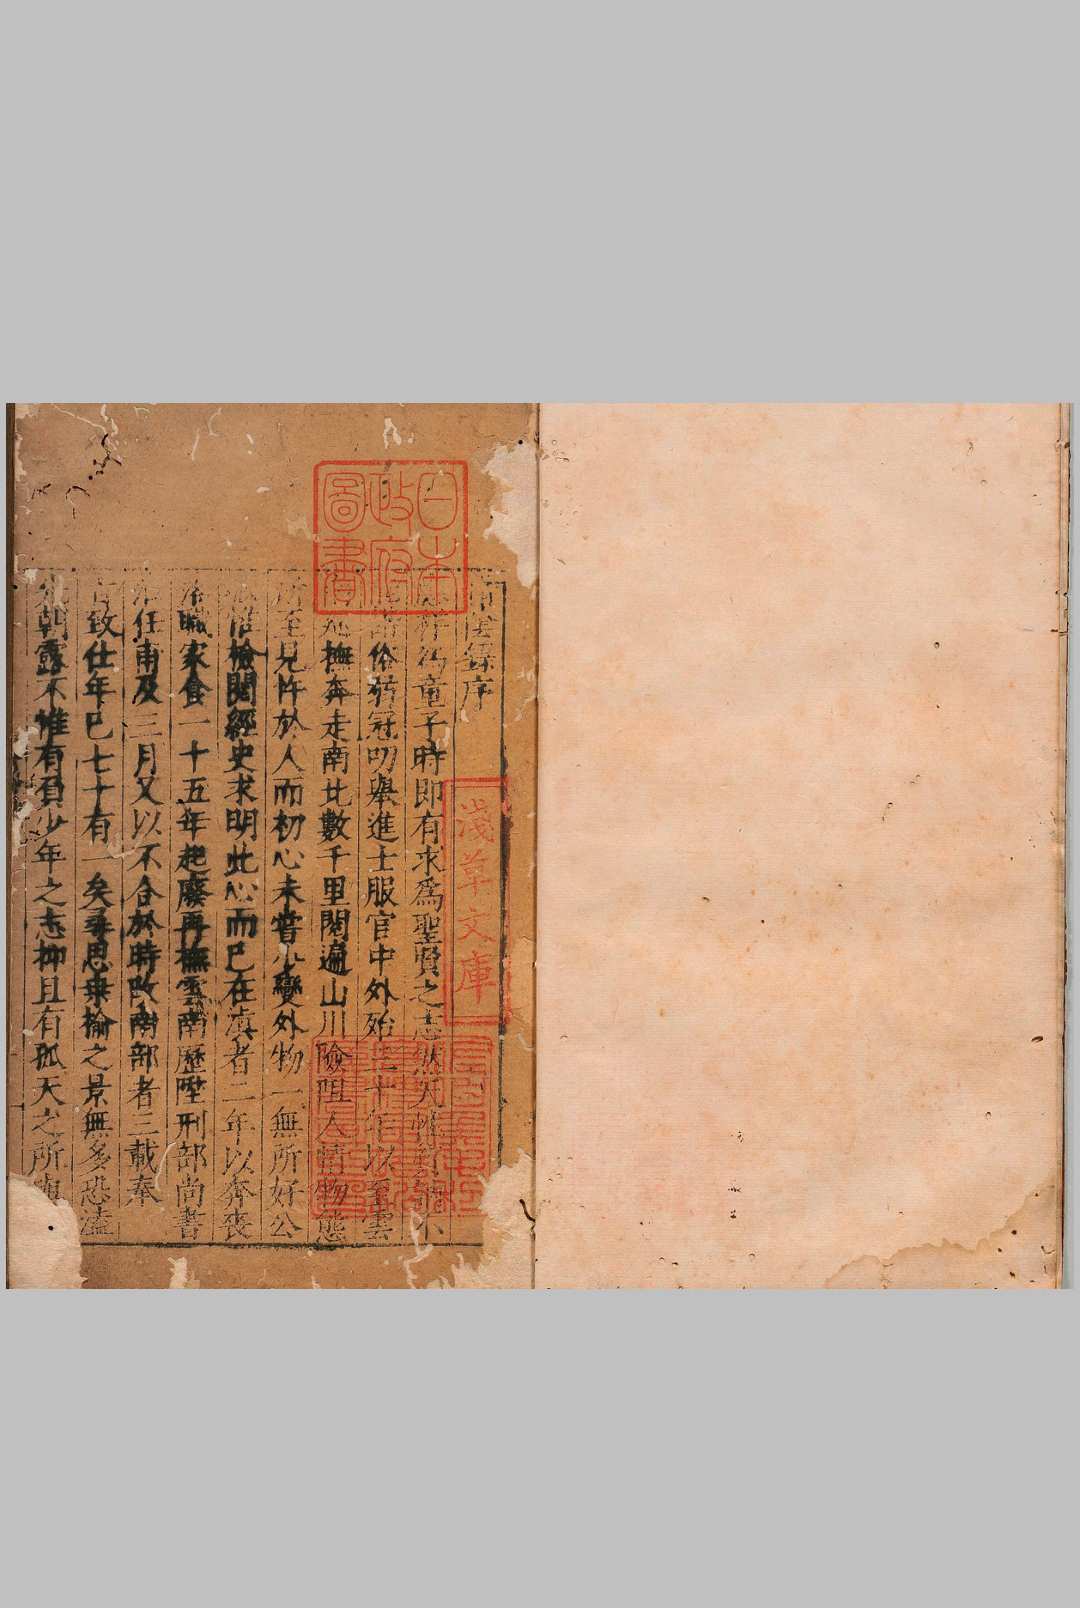 錄序
爲童子時即有求爲聖賢之志然天
俗弱冠叨舉進士服官中外殆三十年以至雲
撫奔走南北數千里閱遍山川險阻人情物態
所至見忤於人而初心未嘗少變外物一無所好公
惟檢閱經史求明此心而已在滇者二年以奔喪
職家食一十五年起廢再撫雲南歷陞刑部尚書
任甫及三月又以不合於時改南部者三載奉
致仕年已七十有一矣尋思桑榆之景無多恐溘
朝露不惟有負少年之志抑且有孤天之所
日本
政府
圖書
淺草文庫